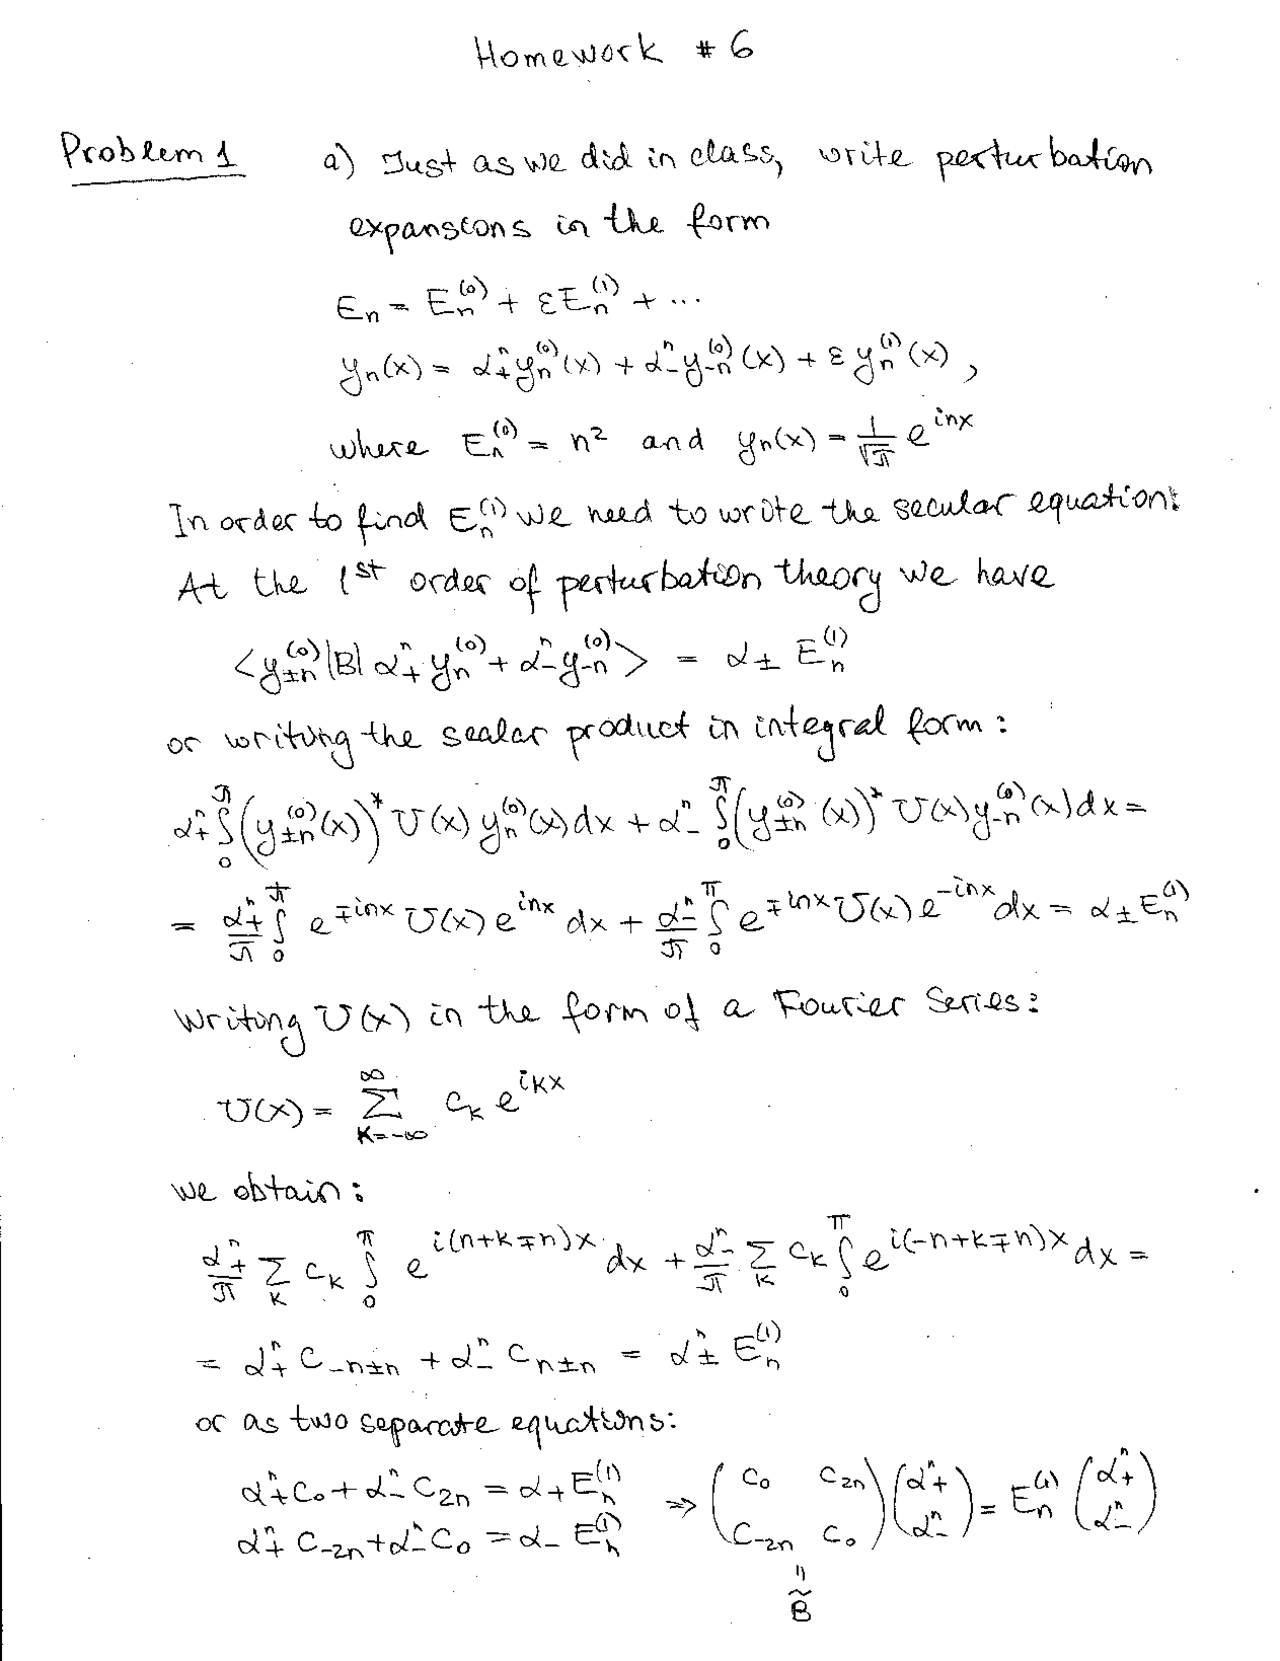 Homework #6
Problem 1 a) Just as we did in class, write perturbation
expansions in the form
E_n = E_n^{(0)} + εE_n^{(1)} + ...
y_n(x) = α_+^n y_n^{(0)}(x) + α_-^n y_{-n}^{(0)}(x) + ε y_n^{(1)}(x),
where E_n^{(0)} = n² and y_n(x) = \frac{1}{\sqrt{π}} e^{inx}
In order to find E_n^{(1)} we need to write the secular equation:
At the 1st order of perturbation theory we have
<y_{±n}^{(0)}|B| α_+^n y_n^{(0)} + α_-^n y_{-n}^{(0)}> = α_± E_n^{(1)}
or writing the scalar product in integral form:
α_+^n ∫_0^π (y_{±n}^{(0)}(x))^* U(x) y_n^{(0)}(x) dx + α_-^n ∫_0^π (y_{±n}^{(0)}(x))^* U(x) y_{-n}^{(0)}(x) dx =
= \frac{α_+^n}{π} ∫_0^π e^{∓inx} U(x) e^{inx} dx + \frac{α_-^n}{π} ∫_0^π e^{∓inx} U(x) e^{-inx} dx = α_± E_n^{(1)}
Writing U(x) in the form of a Fourier Series:
U(x) = \sum_{k=-∞}^{∞} c_k e^{ikx}
we obtain:
\frac{α_+^n}{π} \sum_k c_k ∫_0^π e^{i(n+k∓n)x} dx + \frac{α_-^n}{π} \sum_k c_k ∫_0^π e^{i(-n+k∓n)x} dx =
= α_+^n c_{-n±n} + α_-^n c_{n±n} = α_±^n E_n^{(1)}
or as two separate equations:
α_+^n c_0 + α_-^n c_{2n} = α_+ E_n^{(1)} ⇒ \begin{pmatrix} c_0 & c_{2n} \\ c_{-2n} & c_0 \end{pmatrix} \begin{pmatrix} α_+^n \\ α_-^n \end{pmatrix} = E_n^{(1)} \begin{pmatrix} α_+^n \\ α_-^n \end{pmatrix}
α_+^n c_{-2n} + α_-^n c_0 = α_- E_n^{(1)}
=
\tilde{B}